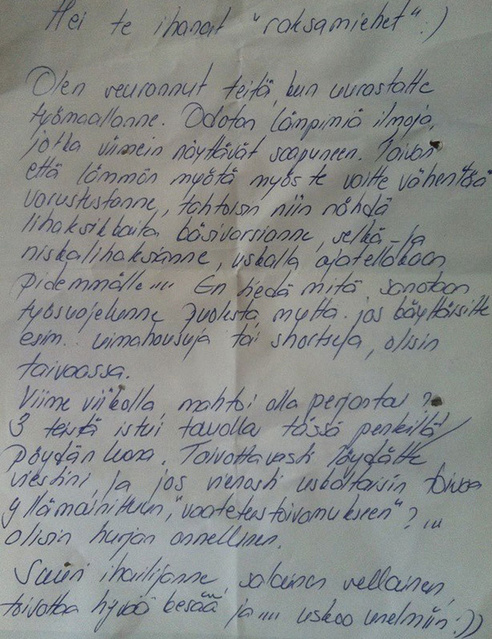 Hei te ihanat "raksamiehet" :)
Olen seurannut teitä, kun uurastatte
työmaallanne. Odotan lämpimiä ilmoja,
jotka viimein näyttävät saapuneen. Toivon
että lämmön myötä myös te voitte vähentää
varustustanne, tahtoisin niin nähdä
lihaksikkaita käsivarsianne, selkä- ja
niskalihaksianne, uskalla ajatellakaan
pidemmälle.... En tiedä mitä sanotaan
työsuojelunne puolesta, mutta jos käyttäisitte
esim. uimahousuja tai shortseja, olisin
taivaassa.
Viime viikolla, mahtoi olla perjantai?
3 teistä istui tauolla tässä penkillä/
pöydän luona. Toivottavasti löydätte
viestini, ja jos vienosti uskaltaisin toivoa
yllämainittuun, "vaatetustoivomukseen"?...
olisin hurjan onnellinen.
Suuri ihailijanne, salainen sellainen,
toivottaa hyvää kesää ja.... uskoo unelmiin :))